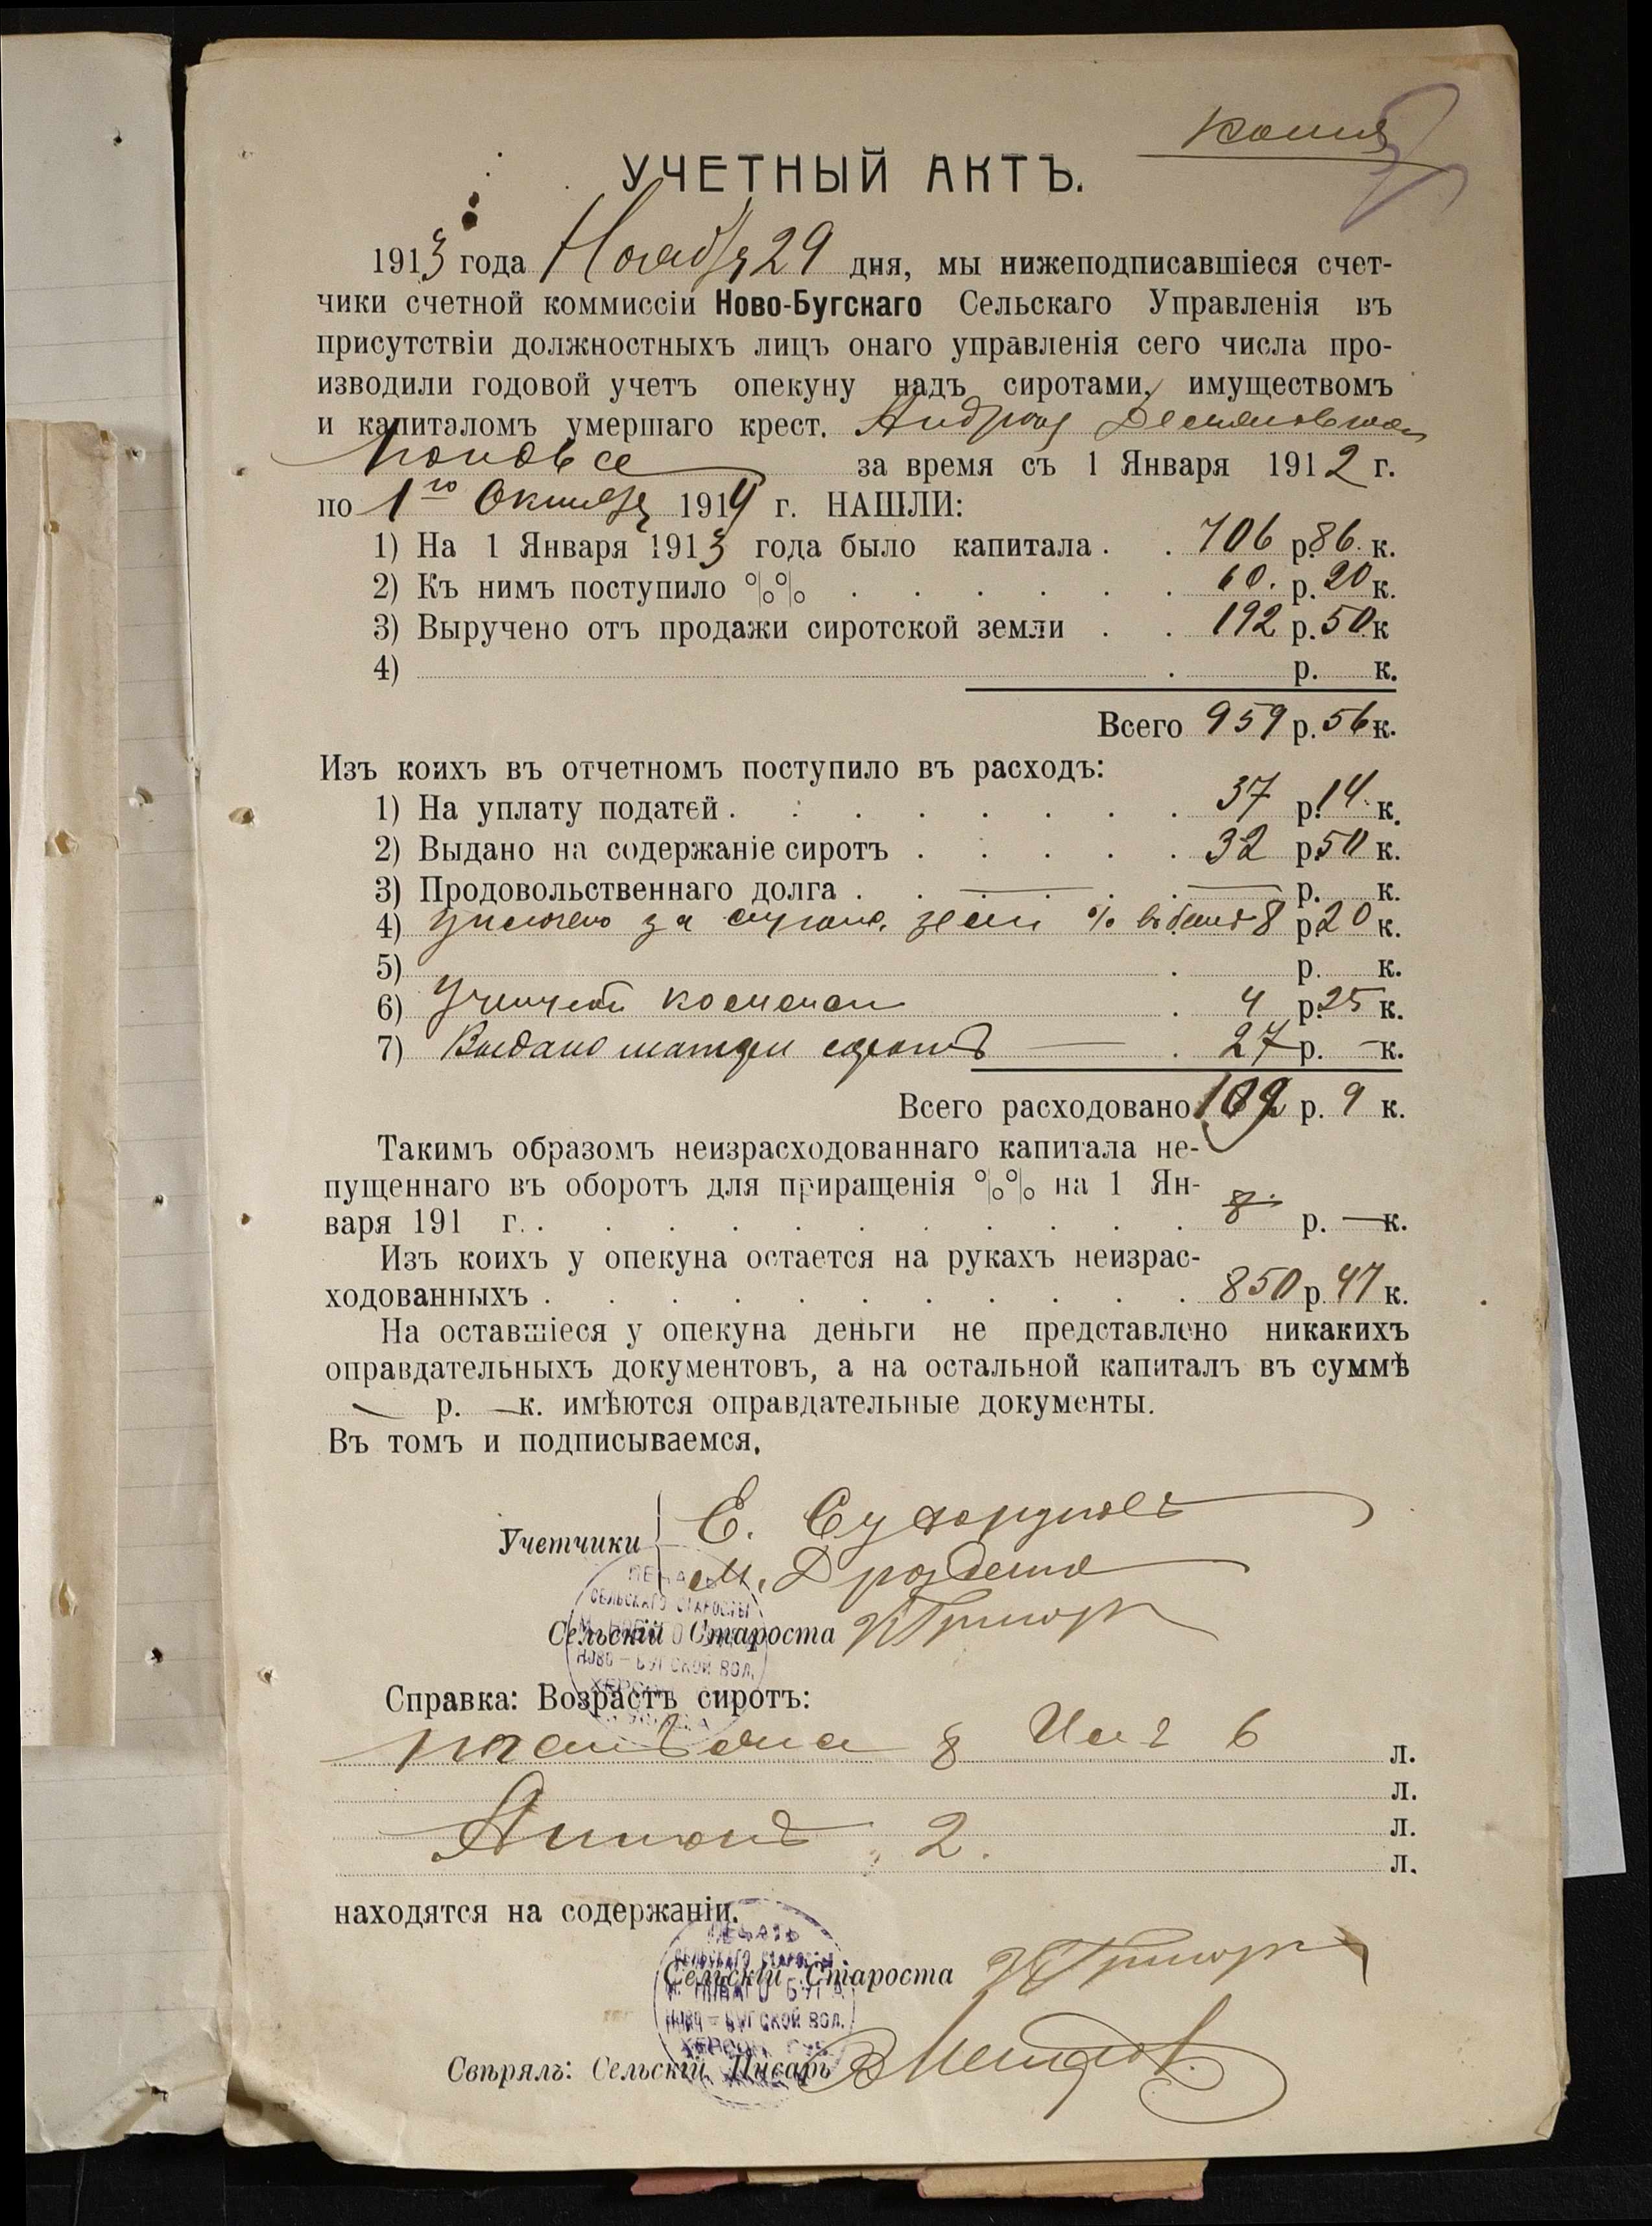 Копия
УЧЕТНЫЙ АКТЪ.
1913 года Ноября 29 дня, мы нижеподписавшіеся счет-
чики счетной коммиссіи Ново-Бугскаго Сельскаго Управленія въ
присутствіи должностныхъ лицъ онаго управленія сего числа про-
изводили годовой учетъ опекуну надъ сиротами, имуществомъ
и капиталомъ умершаго крест. Андрея
за время съ 1 Января 1912 г.
по 1го Октября 1914 г. НАШЛИ:
1) На 1 Января 1913 года было капитала . . 706 р. 86 к.
2) Къ нимъ поступило %% . . . . . . 60 р. 20 к.
3) Выручено отъ продажи сиротской земли . . 192 р. 50 к
4) . р. к.
Всего 959 р. 56 к.
Изъ коихъ въ отчетномъ поступило въ расходъ:
1) На уплату податей . . . . . . . . 37 р. 14 к.
2) Выдано на содержаніе сиротъ . . . . . 32 р. 50 к.
3) Продовольственнаго долга . . — . . — р. к.
4) за земли % 8 р. 20 к.
5) . р. к.
6) . 4 р. 25 к.
7) Выдано матери сиротъ — . 27 р. — к.
Всего расходовано 109 р. 9 к.
Такимъ образомъ неизрасходованнаго капитала не-
пущеннаго въ оборотъ для приращенія %% на 1 Ян-
варя 191 г. . . . . . . . . . . . р. — к.
Изъ коихъ у опекуна остается на рукахъ неизрас-
ходованныхъ . . . . . . . . . . . 850 р. 47 к.
На оставшіеся у опекуна деньги не представлено никакихъ
оправдательныхъ документовъ, а на остальной капиталъ въ суммѣ
— р. — к. имѣются оправдательные документы.
Въ томъ и подписываемся.
Учетчики Е.
М.
Сельскій Староста
Справка: Возрастъ сиротъ:
8 6 л.
л.
Антонъ 2. л.
л.
находятся на содержаніи.
Сельскій Староста
Свѣрялъ: Сельскій Писарь